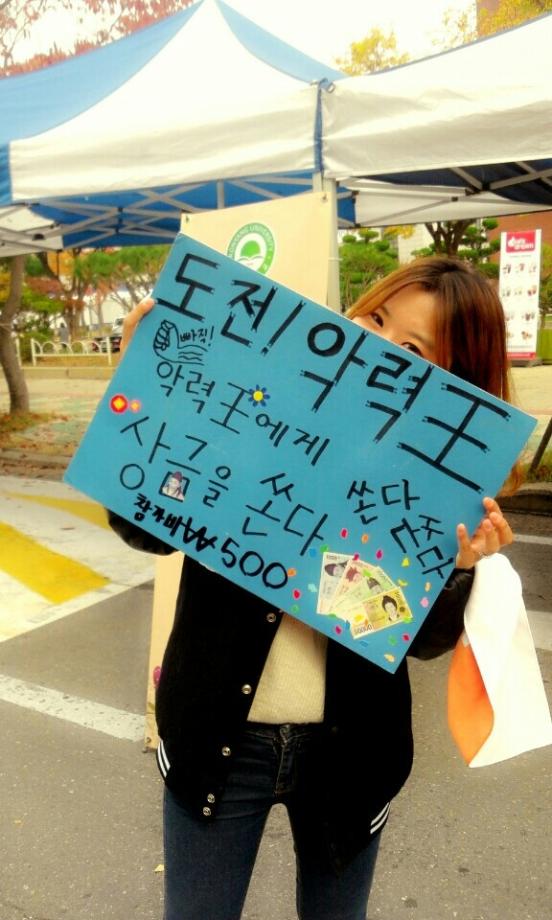 도전! 악력王
빠직!
악력王에게
상금을 쏜다
쏜다
참가비₩500
UNIVERSITY